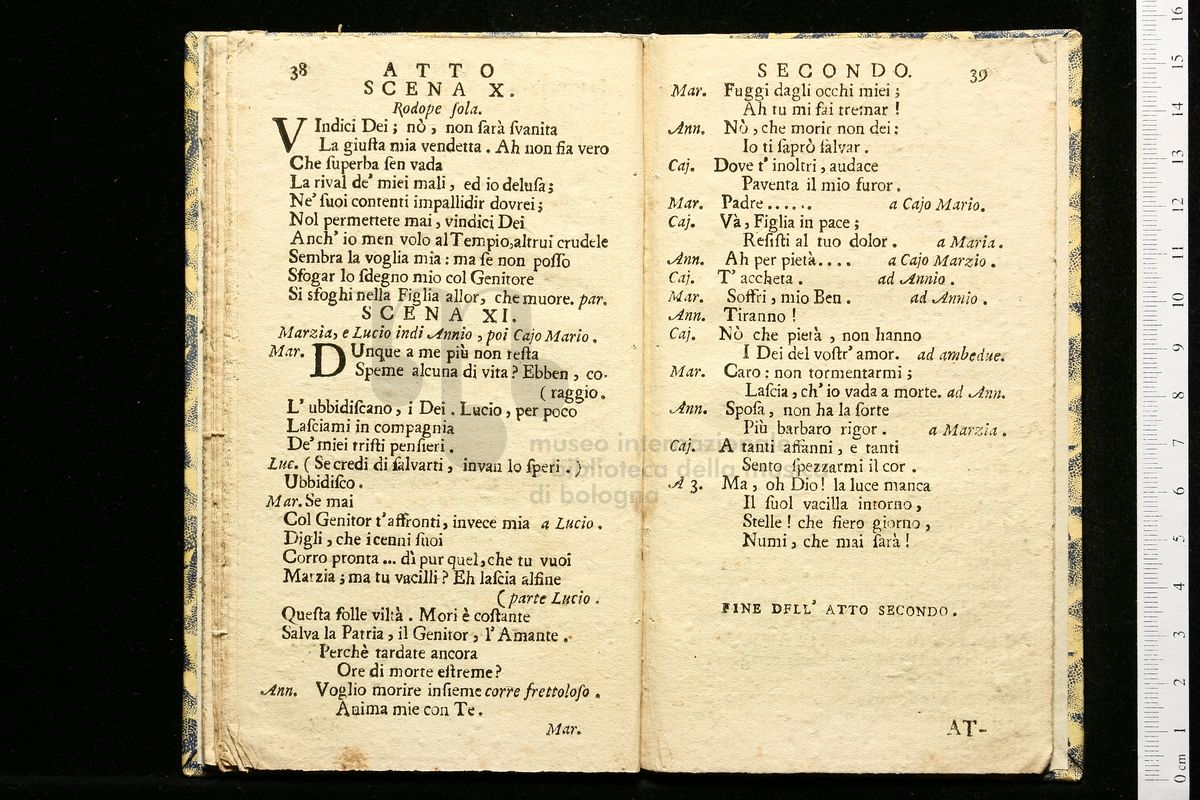 38 ATTO
SCENA X.
Rodope ſola.
VIndici Dei; nò, non ſarà ſvanita
La giuſta mia vendetta. Ah non fia vero
Che ſuperba ſen vada
La rival de' miei mali, ed io deluſa;
Ne' ſuoi contenti impallidir dovrei;
Nol permettete mai, vindici Dei
Anch' io men volo al Tempio, altrui crudele
Sembra la voglia mia: ma ſe non poſſo
Sfogar lo ſdegno mio col Genitore
Si sfoghi nella Figlia allor, che muore. par.
SCENA XI.
Marzia, e Lucio indi Annio, poi Cajo Mario.
Mar. DUnque a me più non reſta
Speme alcuna di vita? Ebben, co-
(raggio.
L' ubbidiſcano, i Dei. Lucio, per poco
Laſciami in compagnia
De' miei triſti penſieri.
Luc. (Se credi di ſalvarti, invan lo ſperi.)
Ubbidiſco.
Mar. Se mai
Col Genitor t'affronti, invece mia a Lucio.
Digli, che i cenni ſuoi
Corro pronta ... dì pur quel, che tu vuoi
Marzia; ma tu vacilli? Eh laſcia alfine
(parte Lucio.
Queſta folle viltà. Mori è coſtante
Salva la Patria, il Genitor, l' Amante.
Perchè tardate ancora
Ore di morte eſtreme?
Ann. Voglio morire inſieme corre frettoloſo.
Anima mie con Te.
Mar.
SECONDO. 39
Mar. Fuggi dagli occhi miei;
Ah tu mi fai tremar!
Ann. Nò, che morir non dei:
Io ti ſaprò ſalvar.
Caj. Dove t' inoltri, audace
Paventa il mio furor.
Mar. Padre...... a Cajo Mario.
Caj. Và, Figlia in pace;
Reſiſti al tuo dolor. a Maria.
Ann. Ah per pietà.... a Cajo Marzio.
Caj. T' accheta. ad Annio.
Mar. Soffri, mio Ben. ad Annio.
Ann. Tiranno!
Caj. Nò che pietà, non hanno
I Dei del voſtr' amor. ad ambedue.
Mar. Caro: non tormentarmi;
Laſcia, ch' io vada a morte. ad Ann.
Ann. Spoſa, non ha la ſorte
Più barbaro rigor. a Marzia.
Caj. A tanti affanni, e tanti
Sento ſpezzarmi il cor.
A 3. Ma, oh Dio! la luce manca
Il ſuol vacilla intorno,
Stelle! che fiero giorno,
Numi, che mai ſarà!
FINE DELL' ATTO SECONDO.
AT-
museo internazionale
e biblioteca della musica
di bologna
0 cm 1 2 3 4 5 6 7 8 9 10 11 12 13 14 15 16